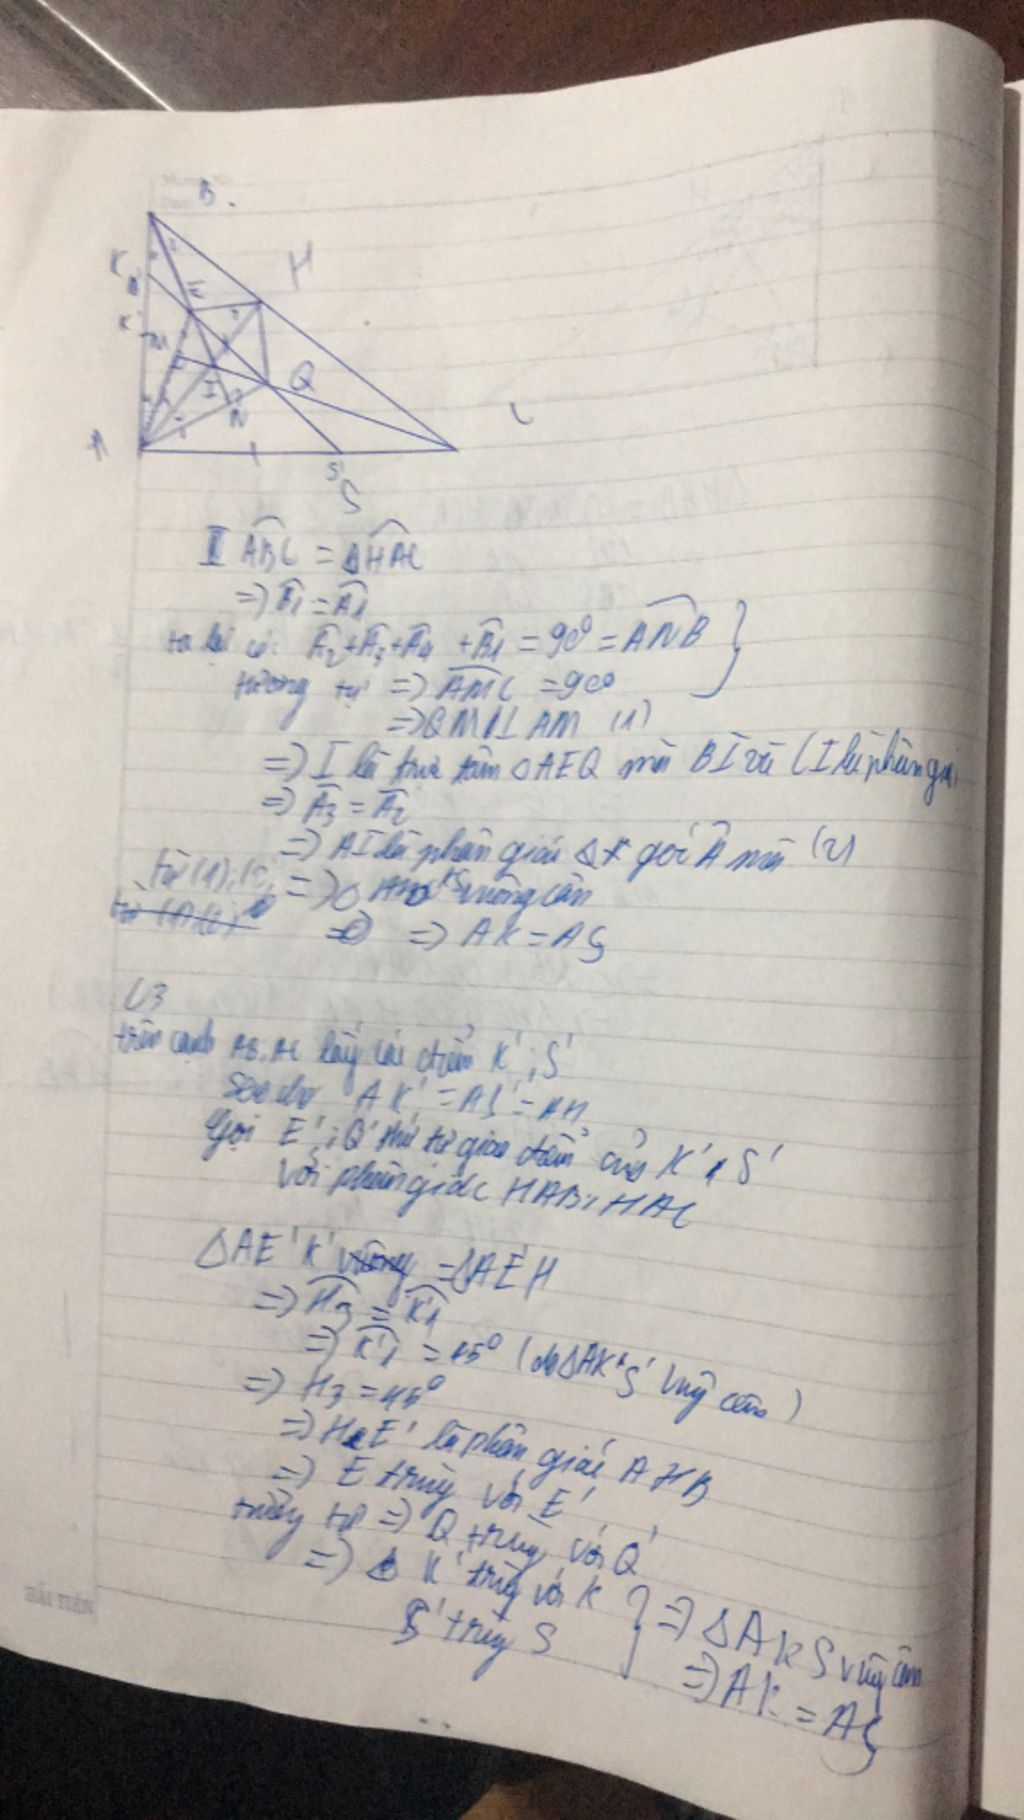 B
K
E
H
K'
M
I
Q
N
A
S'
S
C
II ABC = HAC
=> B1 = A1
ta lại có: A2 + A3 + A4 + B1 = 90° = ANB
tương tự => AMC = 90°
=> I là trực tâm △AEQ mà BI và CI là phân giác
=> A3 = A2
=> AI là phân giác góc A mà (2)
từ (1); (2) => △ AKS vuông cân
=> AK = AS
C3
trên cạnh AB, AC lấy các điểm K'; S'
sao cho AK' = AS' = AH
Gọi E'; Q' thứ tự giao điểm của K' S'
với phân giác HAB; HAC
△AE'K' = △AE'H
=> H3 = K'1
=> K'1 = 45° (do △AK'S' vuông cân)
=> H3 = 45°
=> HE' là phân giác AHB
=> E trùng với E'
tương tự => Q trùng với Q'
=> K' trùng với K
S' trùng S
=> △AKS vuông cân
=> AK = AS